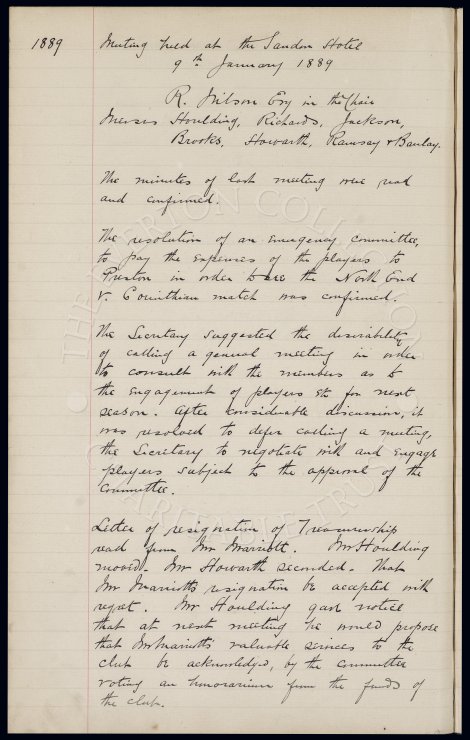 1889 Meeting held at the Sandon Hotel
9th January 1889
R. Wilson Esq in the Chair
Messrs Houlding, Richards, Jackson,
Brooks, Howarth, Ramsay & Barclay.
The minutes of last meeting were read
and confirmed.
The resolution of an emergency committee,
to pay the expenses of the players to
Preston in order to see the North End
v. Corinthian match was confirmed.
The Secretary suggested the desirability
of calling a general meeting in order
to consult with the members as to
the engagement of players etc for next
season. After considerable discussion, it
was resolved to defer calling a meeting,
the Secretary to negotiate with and engage
players subject to the approval of the
Committee.
Letter of resignation of Treasurership
read from Mr Marriott. Mr Houlding
moved. Mr Howarth seconded. That
Mr Marriotts resignation be accepted with
regret. Mr Houlding gave notice
that at next meeting he would propose
that Mr Marriotts valuable services to the
club be acknowledged, by the committee
voting an honorarium from the funds of
the club.
THE EVERTON COLLECTION
CHARITABLE TRUST